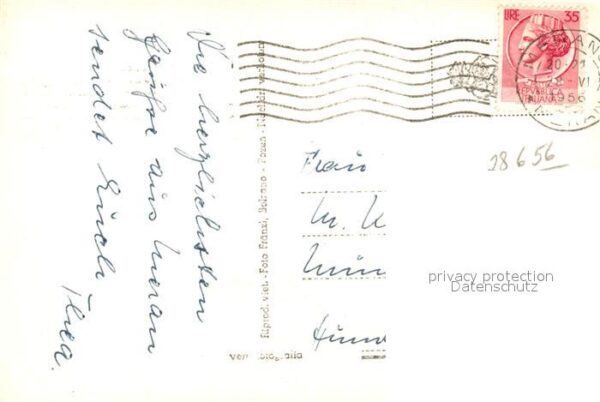 Die herzlichsten
Grüße aus Meran
sendet Euch
Thea.
Riprod. viet. - Foto Fränzl, Bolzano - Bozen - Nachdr. verboten
Vera fotografia
LIRE 35
REPVBBLICA
ITALIANA
MERANO
20-21
28 VI
1956
28 6 56
Frau
M. K
Mün
privacy protection
Datenschutz